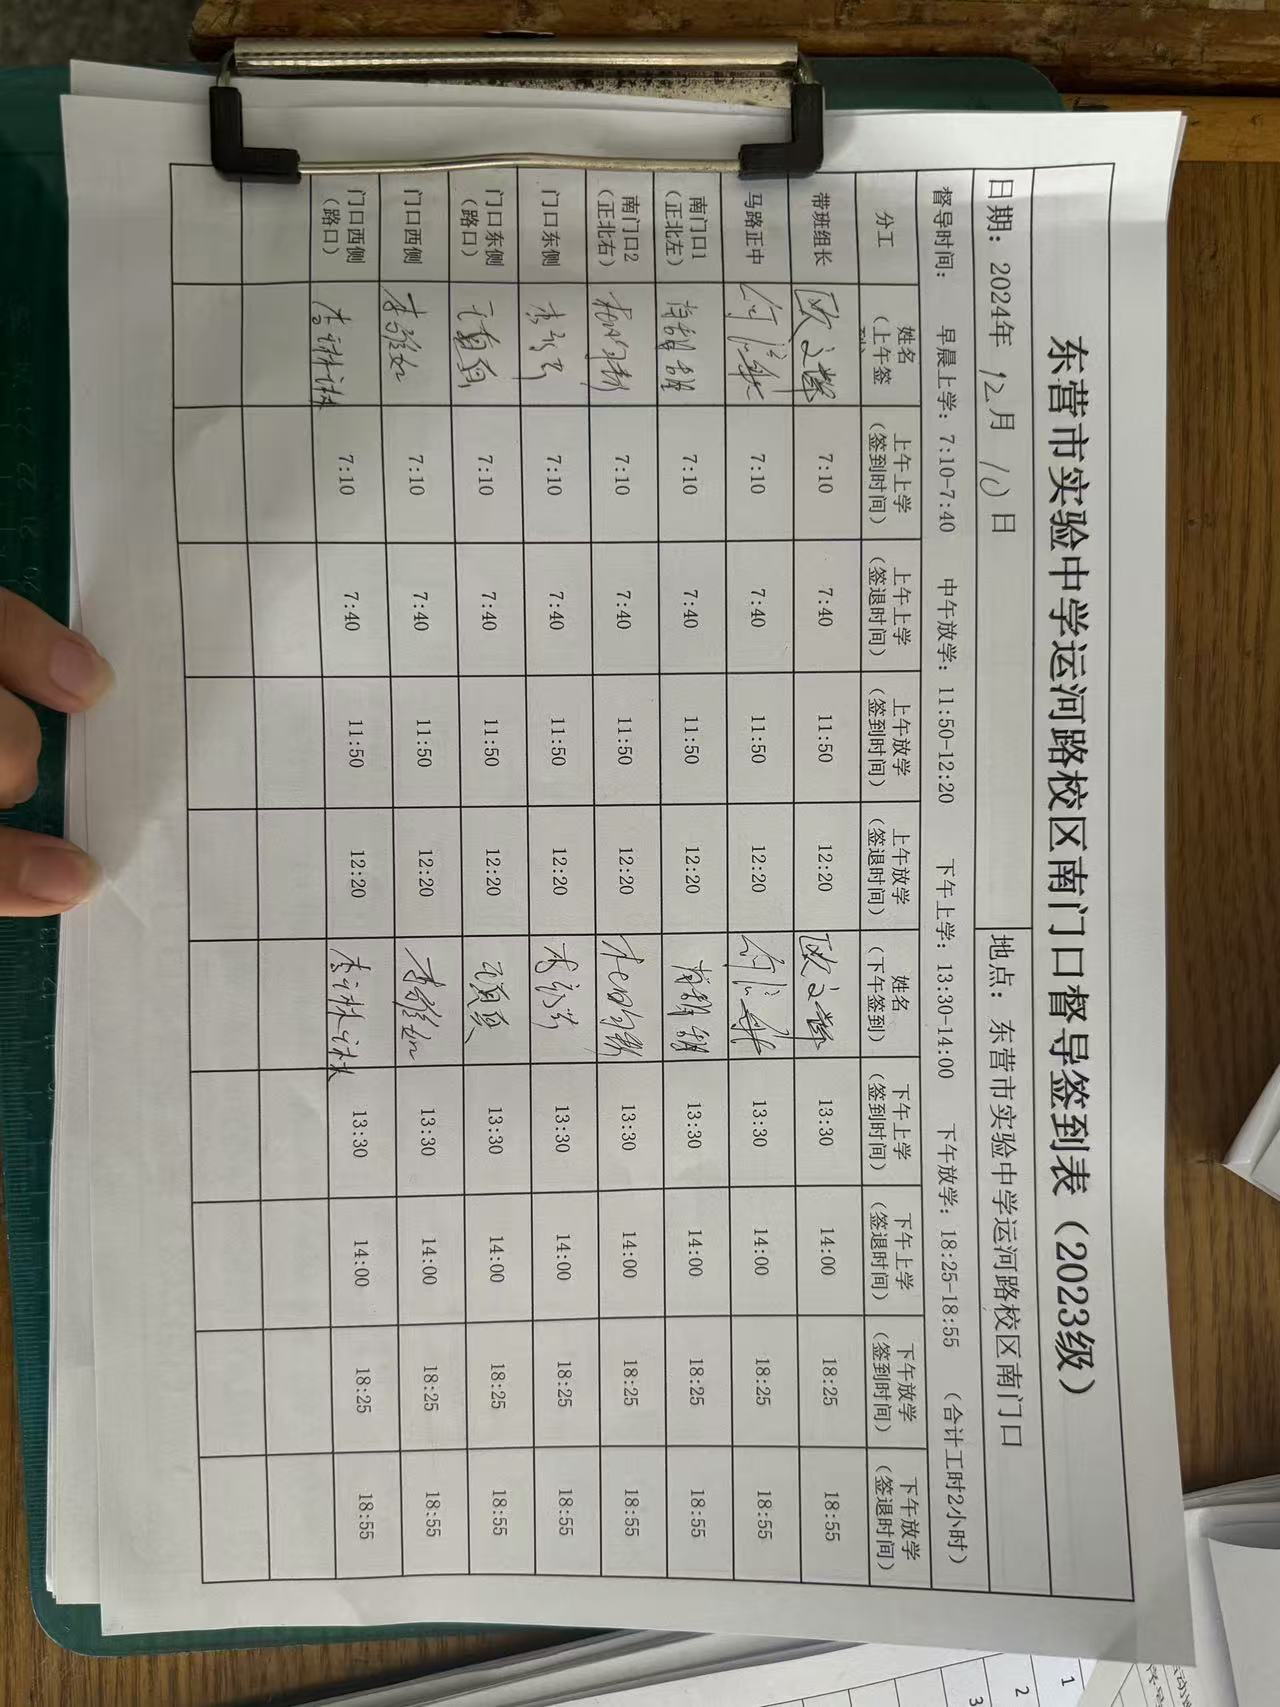 东营市实验中学运河路校区南门口督导签到表（2023级）
日期：2024年 12月 10日 地点：东营市实验中学运河路校区南门口
督导时间： 早晨上学：7:10-7:40 中午放学：11:50-12:20 下午上学：13:30-14:00 下午放学：18:25-18:55 （合计工时2小时）
分工 姓名（上午签 上午上学（签到时间） 上午上学（签退时间） 上午放学（签到时间） 上午放学（签退时间） 姓名（下午签到） 下午上学（签到时间） 下午上学（签退时间） 下午放学（签到时间） 下午放学（签退时间）
带班组长 7:10 7:40 11:50 12:20 13:30 14:00 18:25 18:55
马路正中 7:10 7:40 11:50 12:20 13:30 14:00 18:25 18:55
南门口1（正北左） 7:10 7:40 11:50 12:20 13:30 14:00 18:25 18:55
南门口2（正北右） 7:10 7:40 11:50 12:20 13:30 14:00 18:25 18:55
门口东侧 7:10 7:40 11:50 12:20 13:30 14:00 18:25 18:55
门口东侧（路口） 7:10 7:40 11:50 12:20 13:30 14:00 18:25 18:55
门口西侧 李雅如 7:10 7:40 11:50 12:20 李雅如 13:30 14:00 18:25 18:55
门口西侧（路口） 李琳琳 7:10 7:40 11:50 12:20 李琳琳 13:30 14:00 18:25 18:55
1
2
3